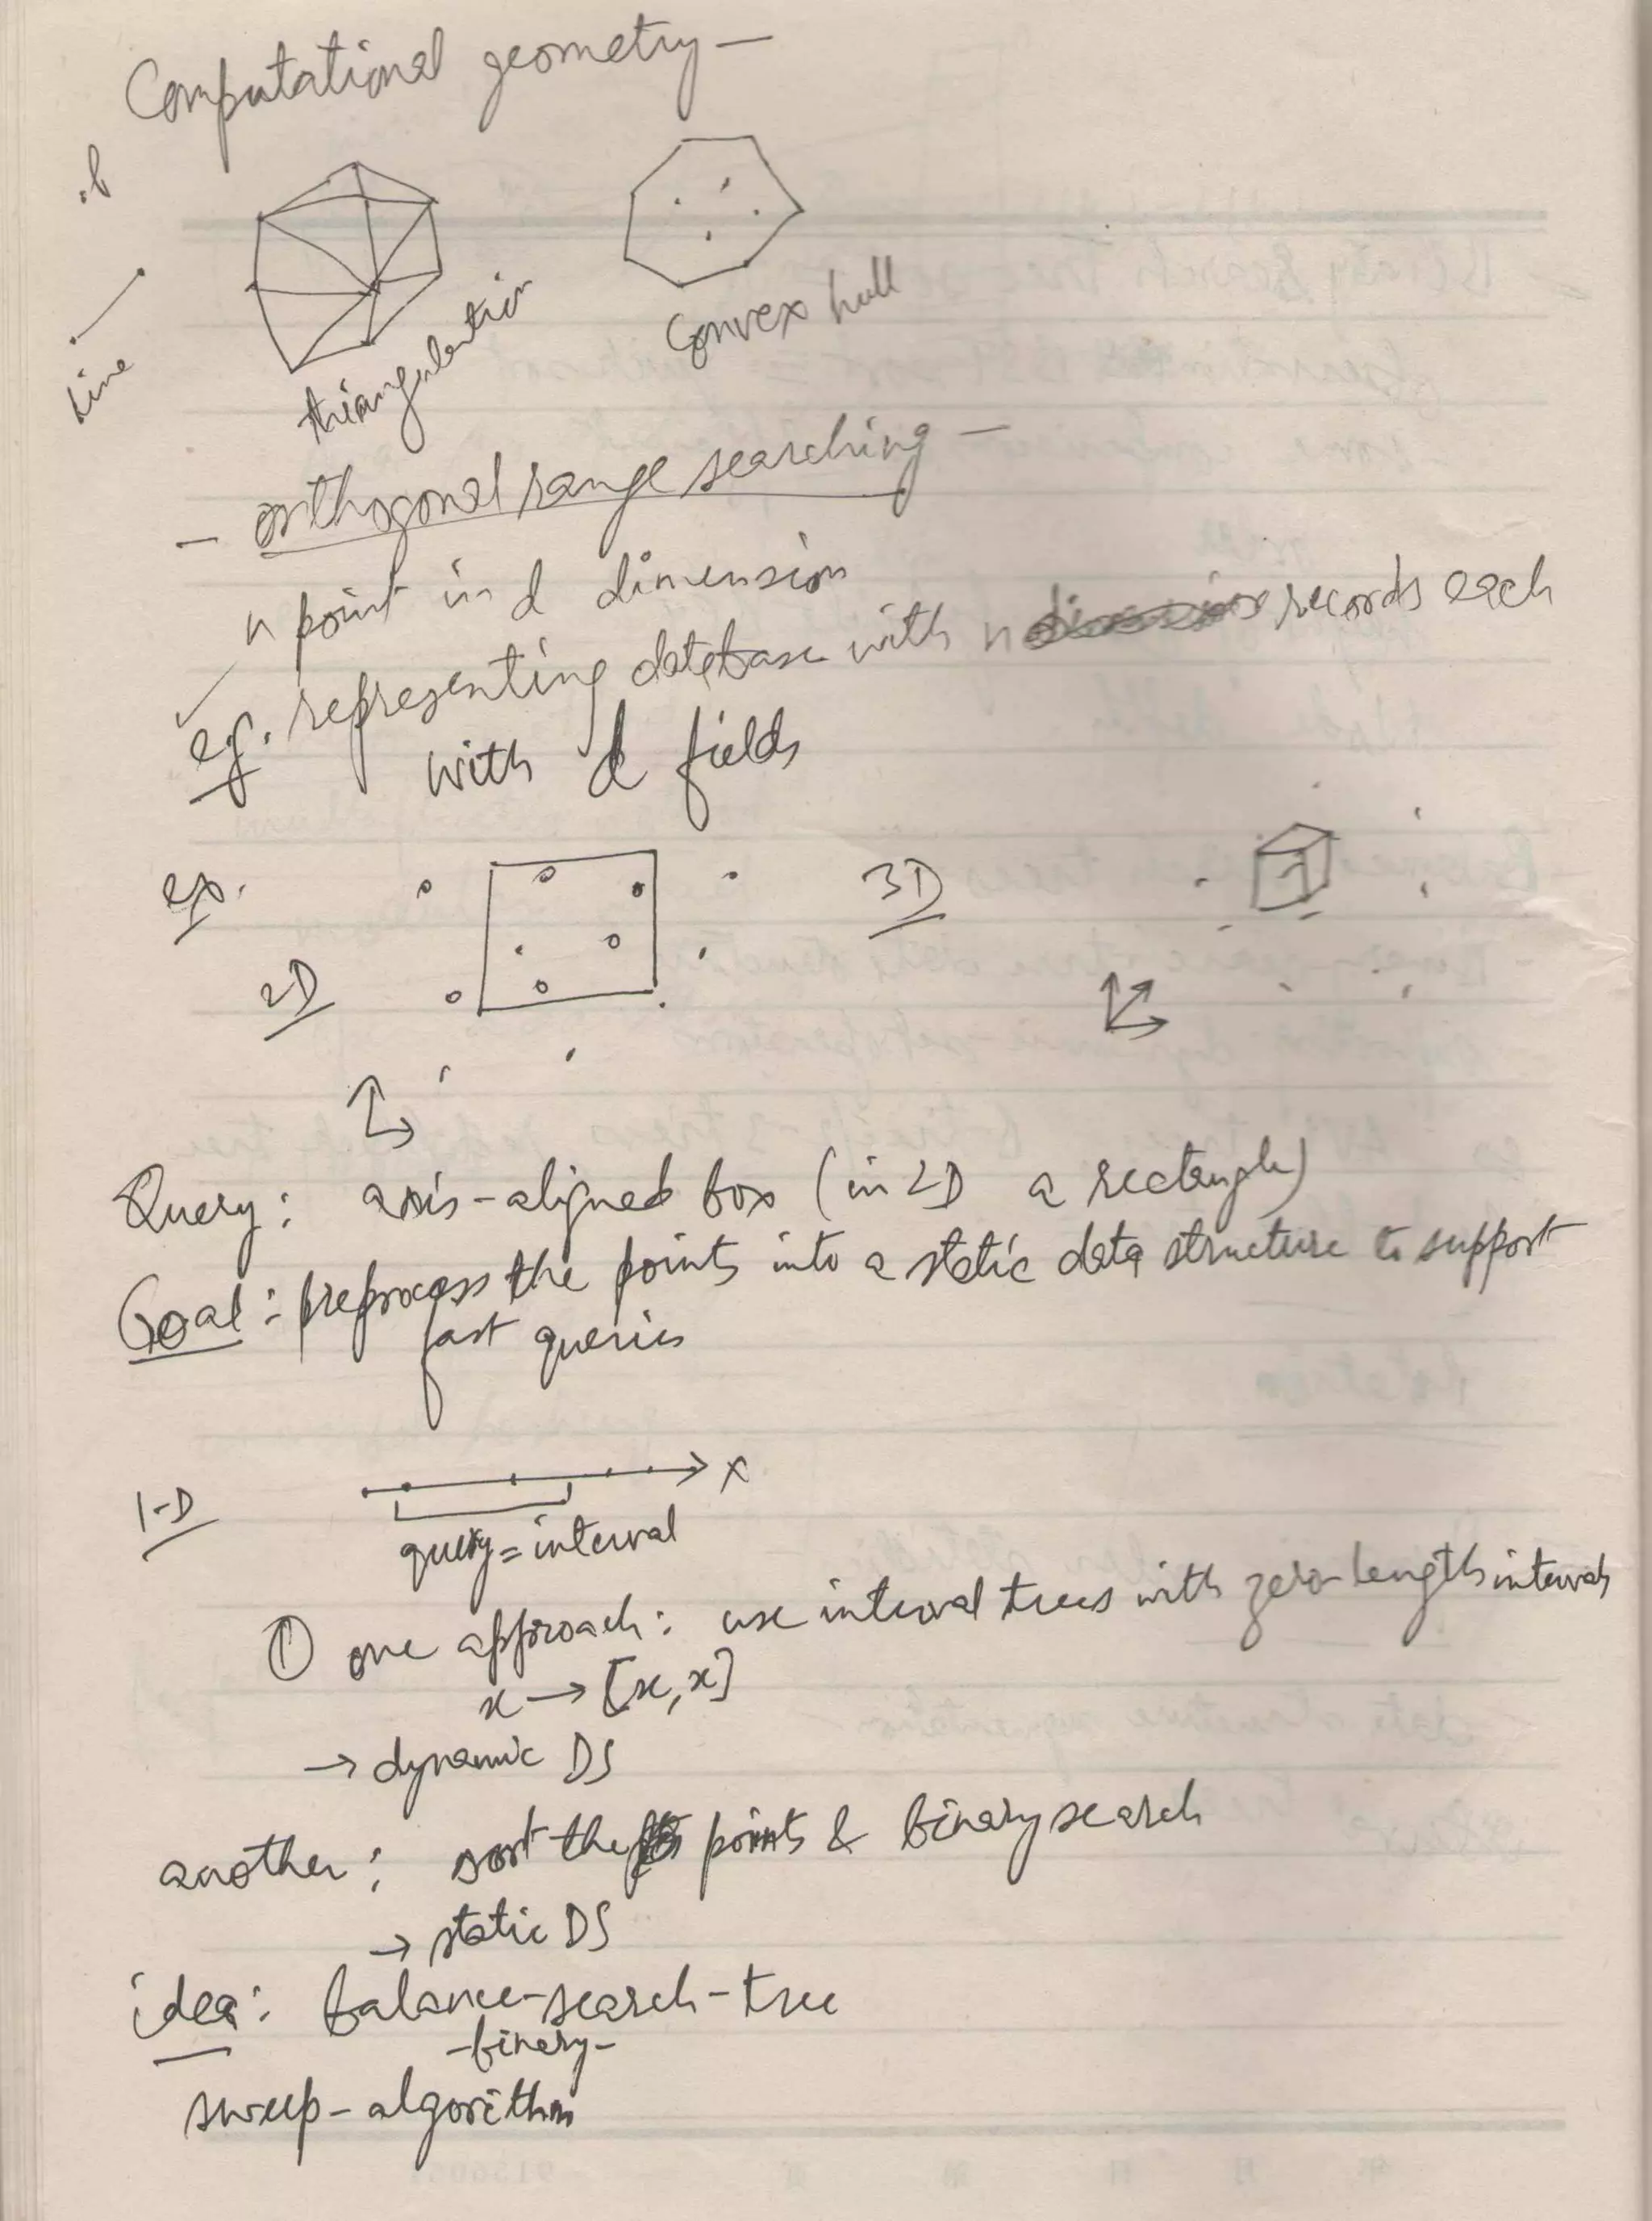 Computational geometry —
Line
triangulation
Convex hull
- orthogonal range searching —
n point in d dimension
e.g. representing database with n records each
with d fields
ex.
2D
3D
Query: axis-aligned box (in 2D a rectangle)
Goal: preprocess the points into a static data structure to support
fast queries
1-D
x
query = interval
① one approach: use interval trees with zero-length intervals
x → [x, x]
→ dynamic DS
another: sort the points & binary search
→ static DS
idea: balance-search-tree
-binary-
sweep-algorithm